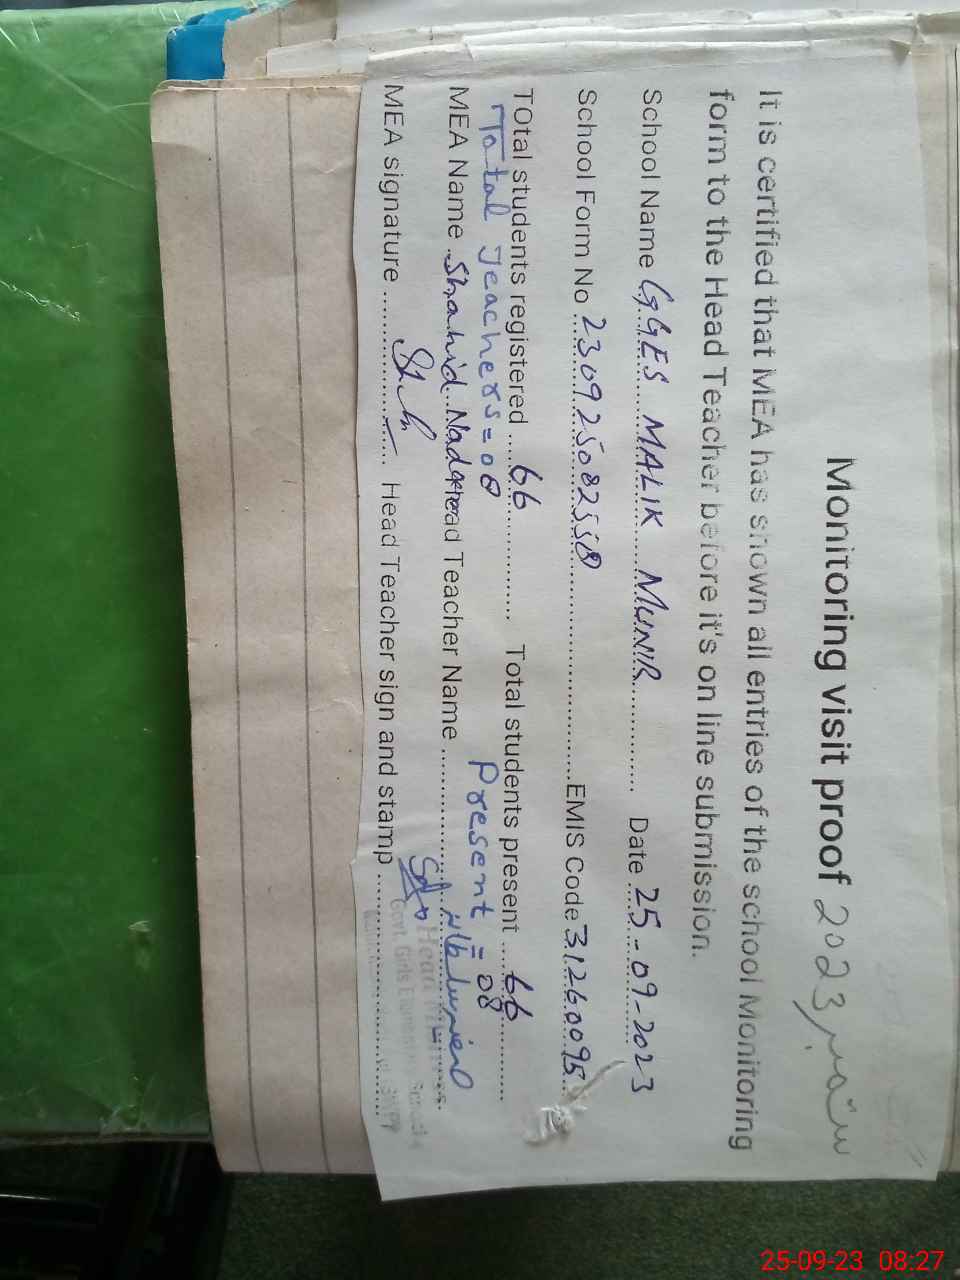 Monitoring visit proof 2023
It is certified that MEA has shown all entries of the school Monitoring
form to the Head Teacher before it's on line submission.
School Name GGES MALIK MUNIR Date 25-09-2023
School Form No 230925082558 EMIS Code 31260095
TOtal students registered 66 Total students present 66
Total Teachers = 08 Present = 08
MEA Name Shahid Nadeem Head Teacher Name
MEA signature Head Teacher sign and stamp
Head Mistress
Govt. Girls Elementary School
25-09-23 08:27